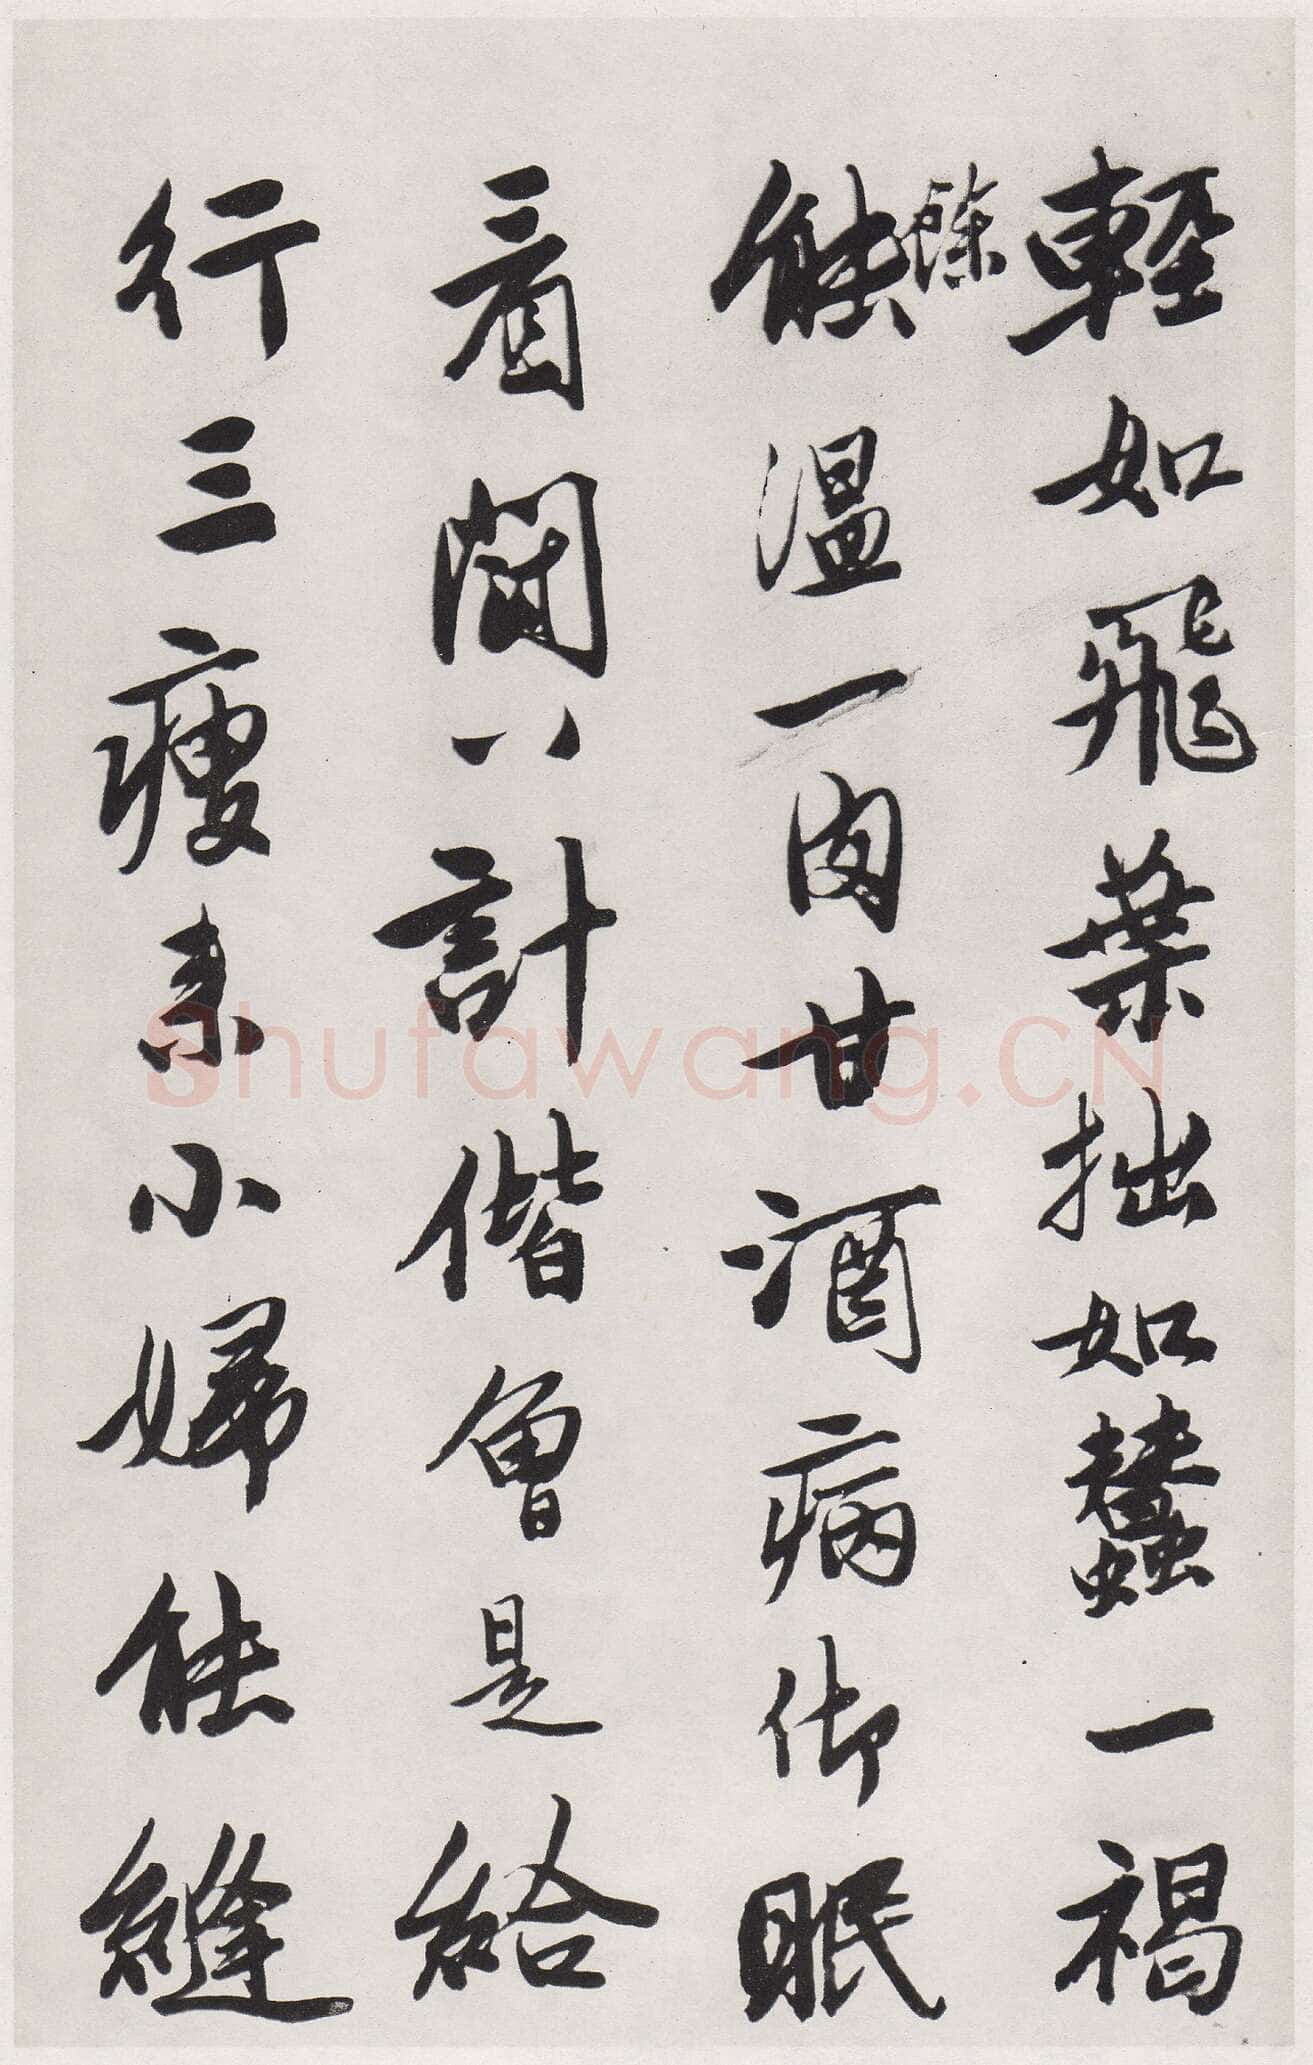 輕如飛葉拙如蠶一褐
餘
能溫一肉甘酒病御眠
看鬪八計偕魯是給
行三瘦來小婦能縫
Shufawang.CN